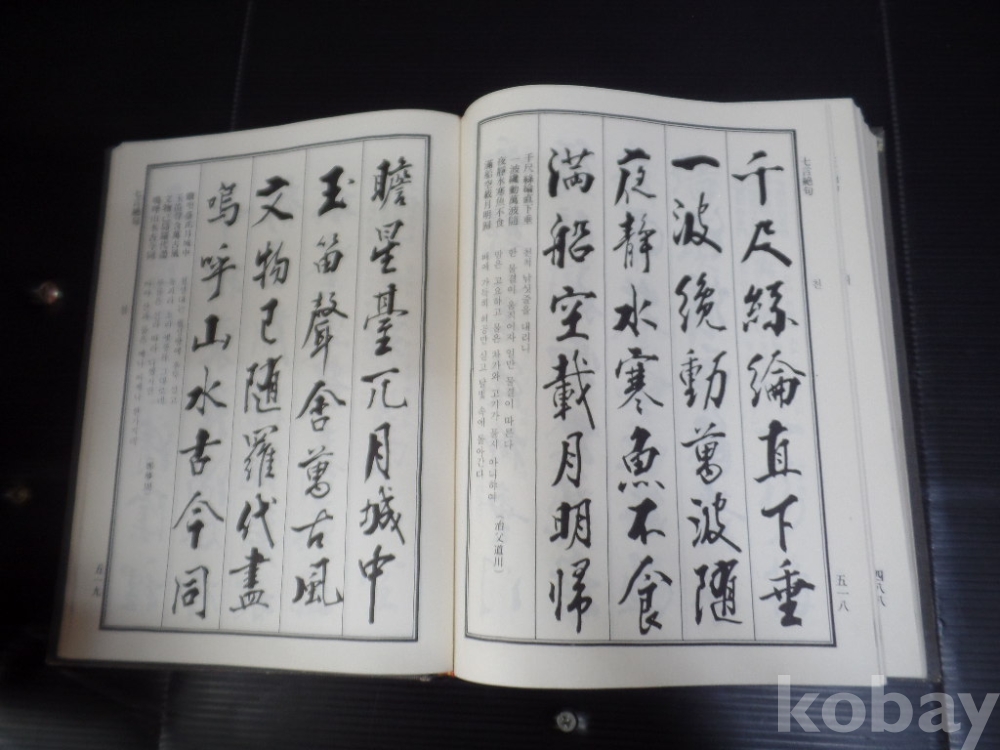 四八八
七言絶句
五一八
千尺絲綸直下垂
一波纔動萬波随
夜靜水寒魚不食
満船空載月明歸
千尺絲綸直下垂
一波纔動萬波隨
夜靜水寒魚不食
滿船空載月明歸
천척 낚싯줄을 내리니
한 물결이 움직이자 일만 물결이 따른다
밤은 고요하고 물은 차가와 고기가 물지 아니하여
배에 가득히 허공만 싣고 달빛 속에 돌아간다
(冶父道川)
瞻星臺兀月城中
玉笛聲含萬古風
文物已随羅代盡
嗚呼山水古今同
七言絶句
五一九
kobay